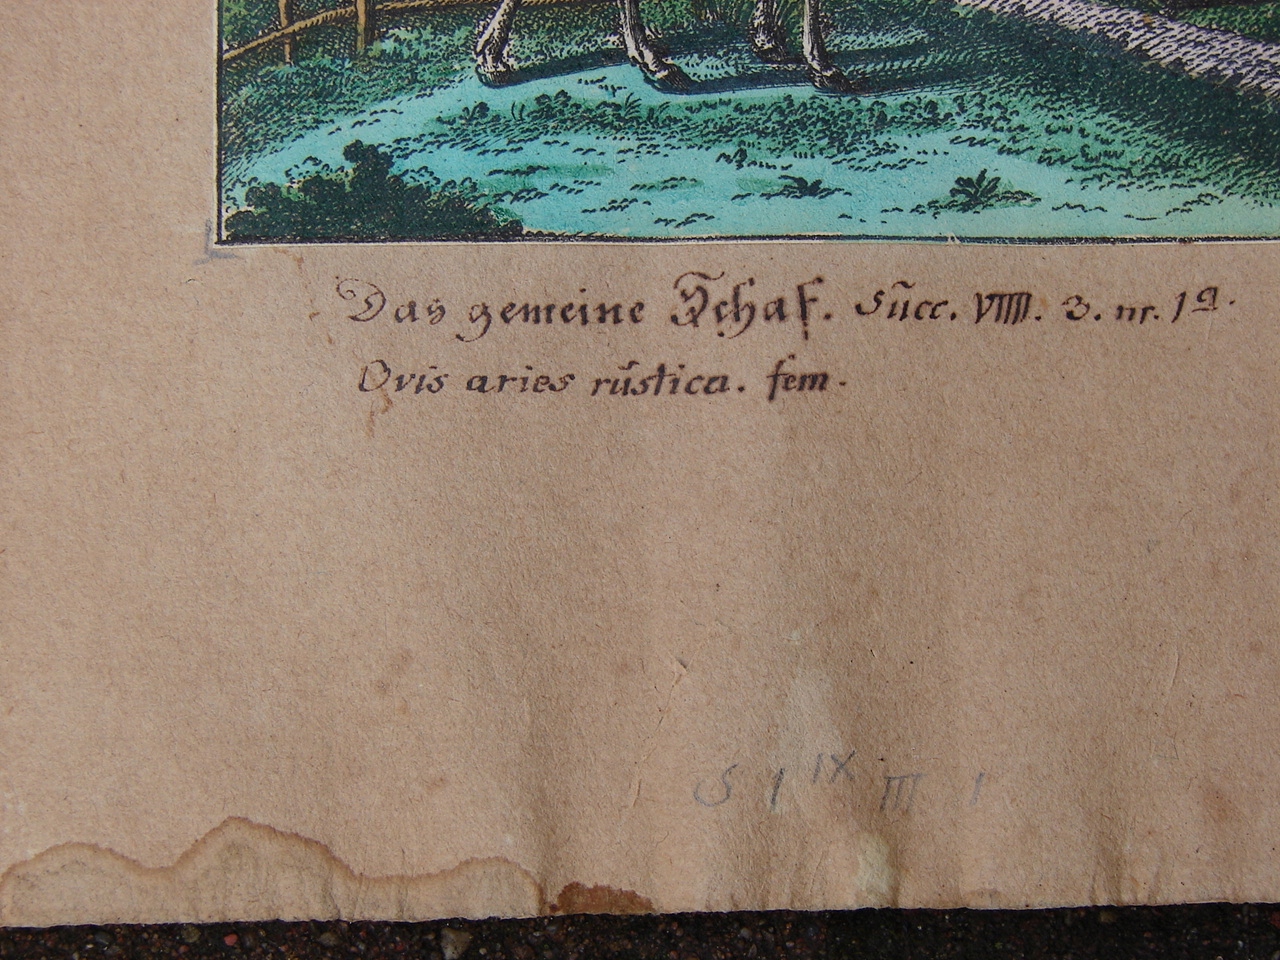 Das gemeine Schaf. Sŭcc. VIIII. 3. nr. 1a.
Ovis aries rŭstica. fem.
S I IX III 1